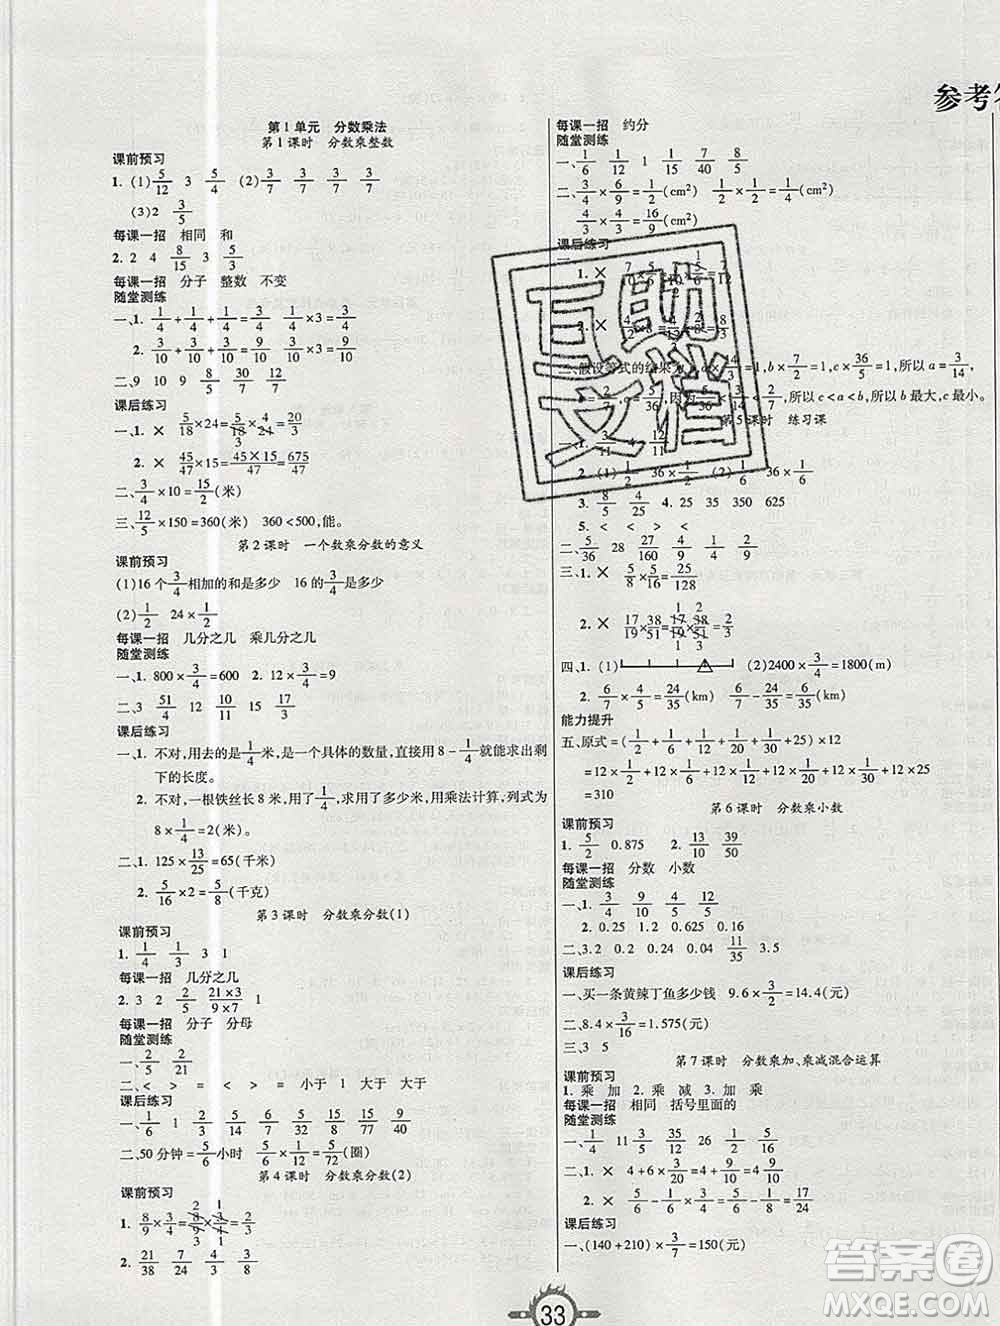 参考
第1单元 分数乘法
第1课时 分数乘整数
课前预习
1. (1)5/12 3 5/4 (2)3/7 3/7 3/7 3/7
(3)2 3/5
每课一招 相同 和
2. 2 4 8/15 3 5/3
每课一招 分子 整数 不变
随堂测练
一、1. 1/4+1/4+1/4=3/4 1/4×3=3/4
2. 3/10+3/10+3/10=9/10 3/10×3=9/10
二、9 10 9 9/8 30/7 12/7
课后练习
一、1. × 5/18×24=5/18×24=20/3
2. × 45/47×15=45×15/47=675/47
二、3/4×10=15/2(米)
三、12/5×150=360(米) 360<500,能。
第2课时 一个数乘分数的意义
课前预习
(1)16个3/4相加的和是多少 16的3/4是多少
(2)1/2 24×1/2
每课一招 几分之几 乘几分之几
随堂测练
一、1. 800×3/4=600 2. 12×3/4=9
二、3 51/4 12 10/11 15 4/17
课后练习
一、1. 不对,用去的是1/4米,是一个具体的数量,直接用8-1/4就能求出剩
下的长度。
2. 不对,一根铁丝长8米,用了1/4,求用了多少米,用乘法计算,列式为
8×1/4=2(米)。
二、1. 125×13/25=65(千米)
2. 5/16×2=5/8(千克)
第3课时 分数乘分数(1)
课前预习
1. 1/4 1/3 3 1
每课一招 几分之几
2. 3 2 2/5 21×3/9×7 1
每课一招 分子 分母
随堂测练
一、2/5 2/21
二、< > < > = 小于 1 大于 大于
课后练习
一、1/6 1 2/3 5/14 6/5 5/32 15/8 8/77
二、50分钟=5/6小时 5/6×1/12=5/72(圈)
第4课时 分数乘分数(2)
课前预习
1. 8/9×3/4=8/9×3/4=2/3
2. 21/38 7/24 20/21 1 8/5
每课一招 约分
随堂测练
一、1/6 1/15 1 3/4 7/40 8/5
二、3/4×6/9=1/2(cm²) 1/2×1/2=1/4(cm²)
4/3×4/3=16/9(cm²)
课后练习
第5课时 练习课
2. (1)1/2 36×1/2 (2)1/6 36×1/6
3. 8/5 4/25 4. 25 35 350 625
5. < < > <
二、5/36 28 27/160 9/4 1/4 1/2
三、1. × 5/8×5/16=25/128
2. × 17/19×38/51=17/19×38/51=2/3
四、1. (1) (2)2400×3/4=1800(m)
2. 6/7×4/5=24/35(km) 6/7-24/35=6/35(km)
能力提升
五、原式=(1/2+1/6+1/12+1/20+1/30+25)×12
=12×1/2+12×1/6+12×1/12+12×1/20+12×1/30+12×25
=310
第6课时 分数乘小数
课前预习
1. 5/2 0.875 2. 13/10 39/50
每课一招 分数 小数
随堂测练
一、1. 1/4 6/5 5/8 4/25
2. 0.25 1.2 0.625 0.16
二、3.2 0.2 0.24 0.4 11/35 3.5
课后练习
一、买一条黄辣丁鱼多少钱 9.6×3/2=14.4(元)
二、8.4×3/16=1.575(元)
三、3 5
第7课时 分数乘加、乘减混合运算
课前预习
1. 乘 加 2. 乘 减 3. 加 乘
每课一招 相同 括号里面的
随堂测练
一、1/4 11 3/5 35/12 26 1/2 5/16
二、1. × 4+6×3/20=4+9/10=4 9/10
课后练习
一、(140+210)×3/7=150(元)
33
互助
文档
答案圈
MXQE.COM